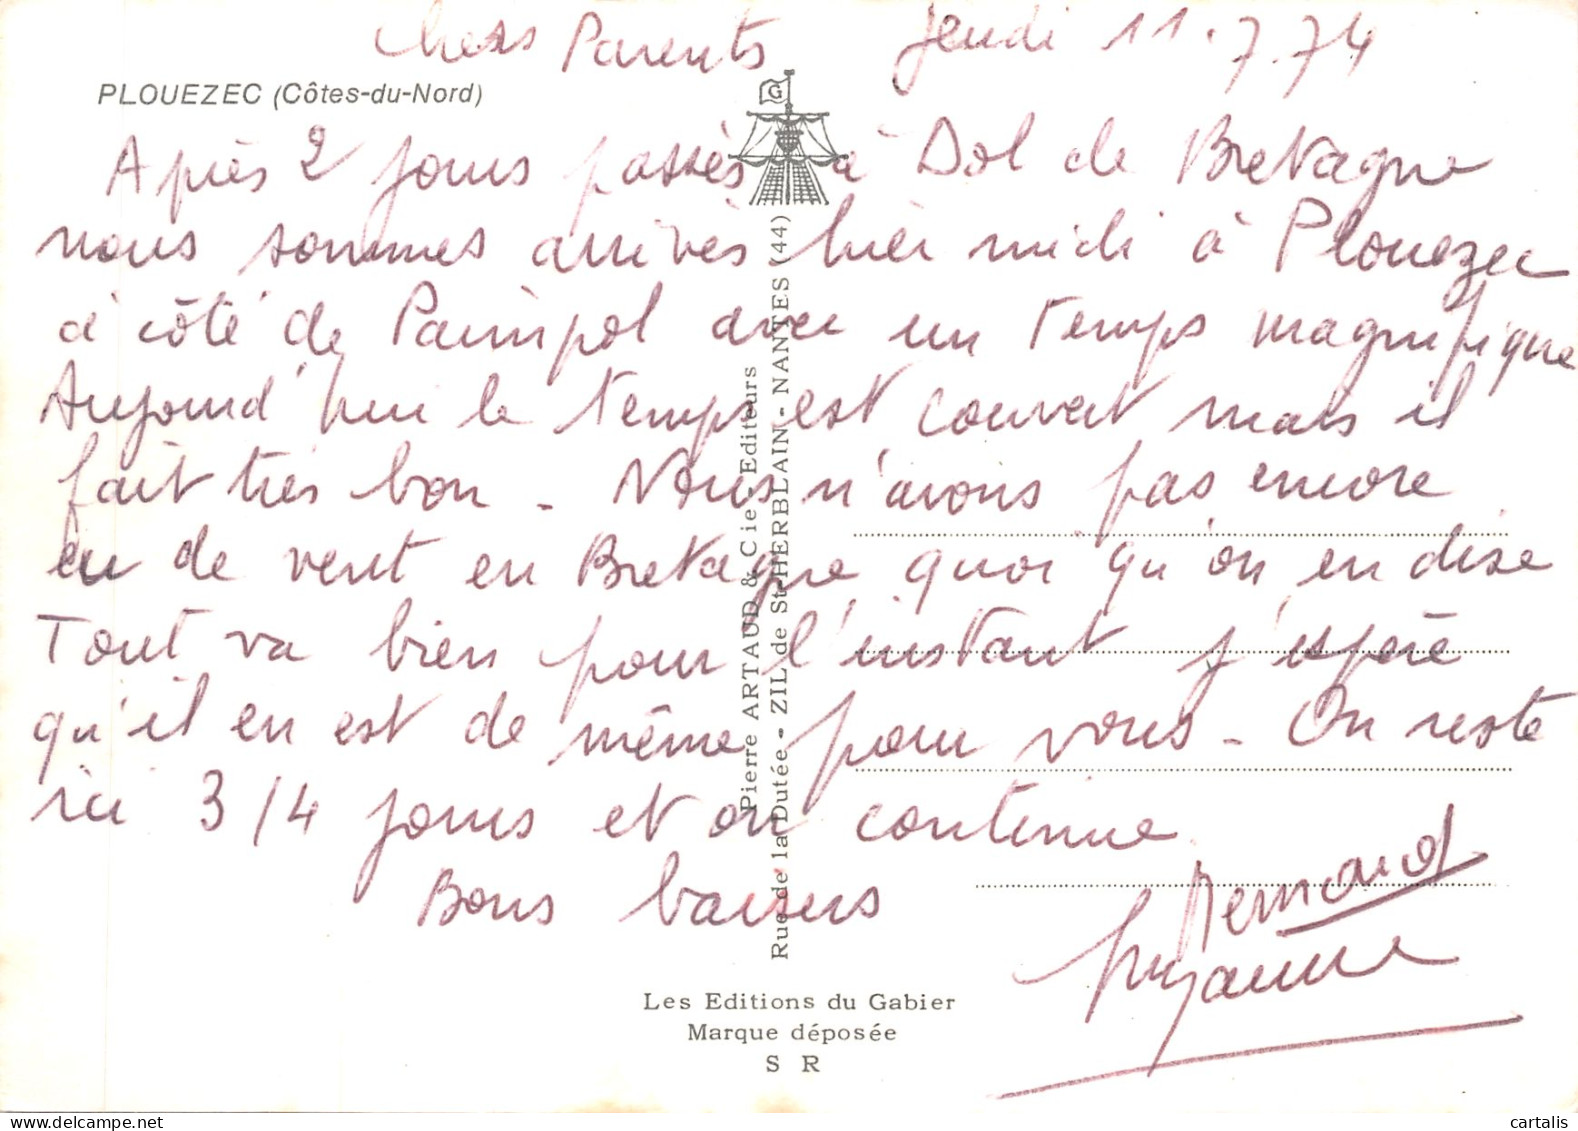 Chers Parents Jeudi 11.7.74
PLOUEZEC (Côtes-du-Nord)
G
Après 2 jours passés à Dol de Bretagne
nous sommes arrivés hier midi à Plouezec
à côté de Paimpol avec un temps magnifique
Aujourd'hui le temps est couvert mais il
fait très bon - Nous n'avons pas encore
eu de vent en Bretagne quoi qu'on en dise
Tout va bien pour l'instant j'espère
qu'il en est de même pour vous - On reste
ici 3/4 jours et on continue
Bons baisers
Bernard
Suzanne
Pierre ARTAUD & Cie - Editeurs
Rue de la Dutée - ZIL de St-HERBLAIN - NANTES (44)
Les Editions du Gabier
Marque déposée
S R
cartalis